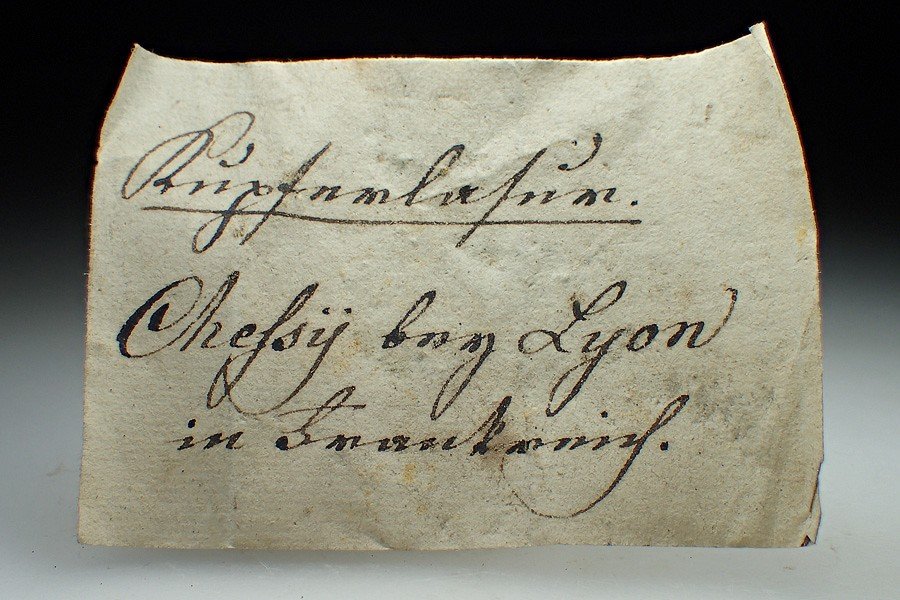 Kupferlasur.
Chessÿ bey Lyon
in Frankreich.